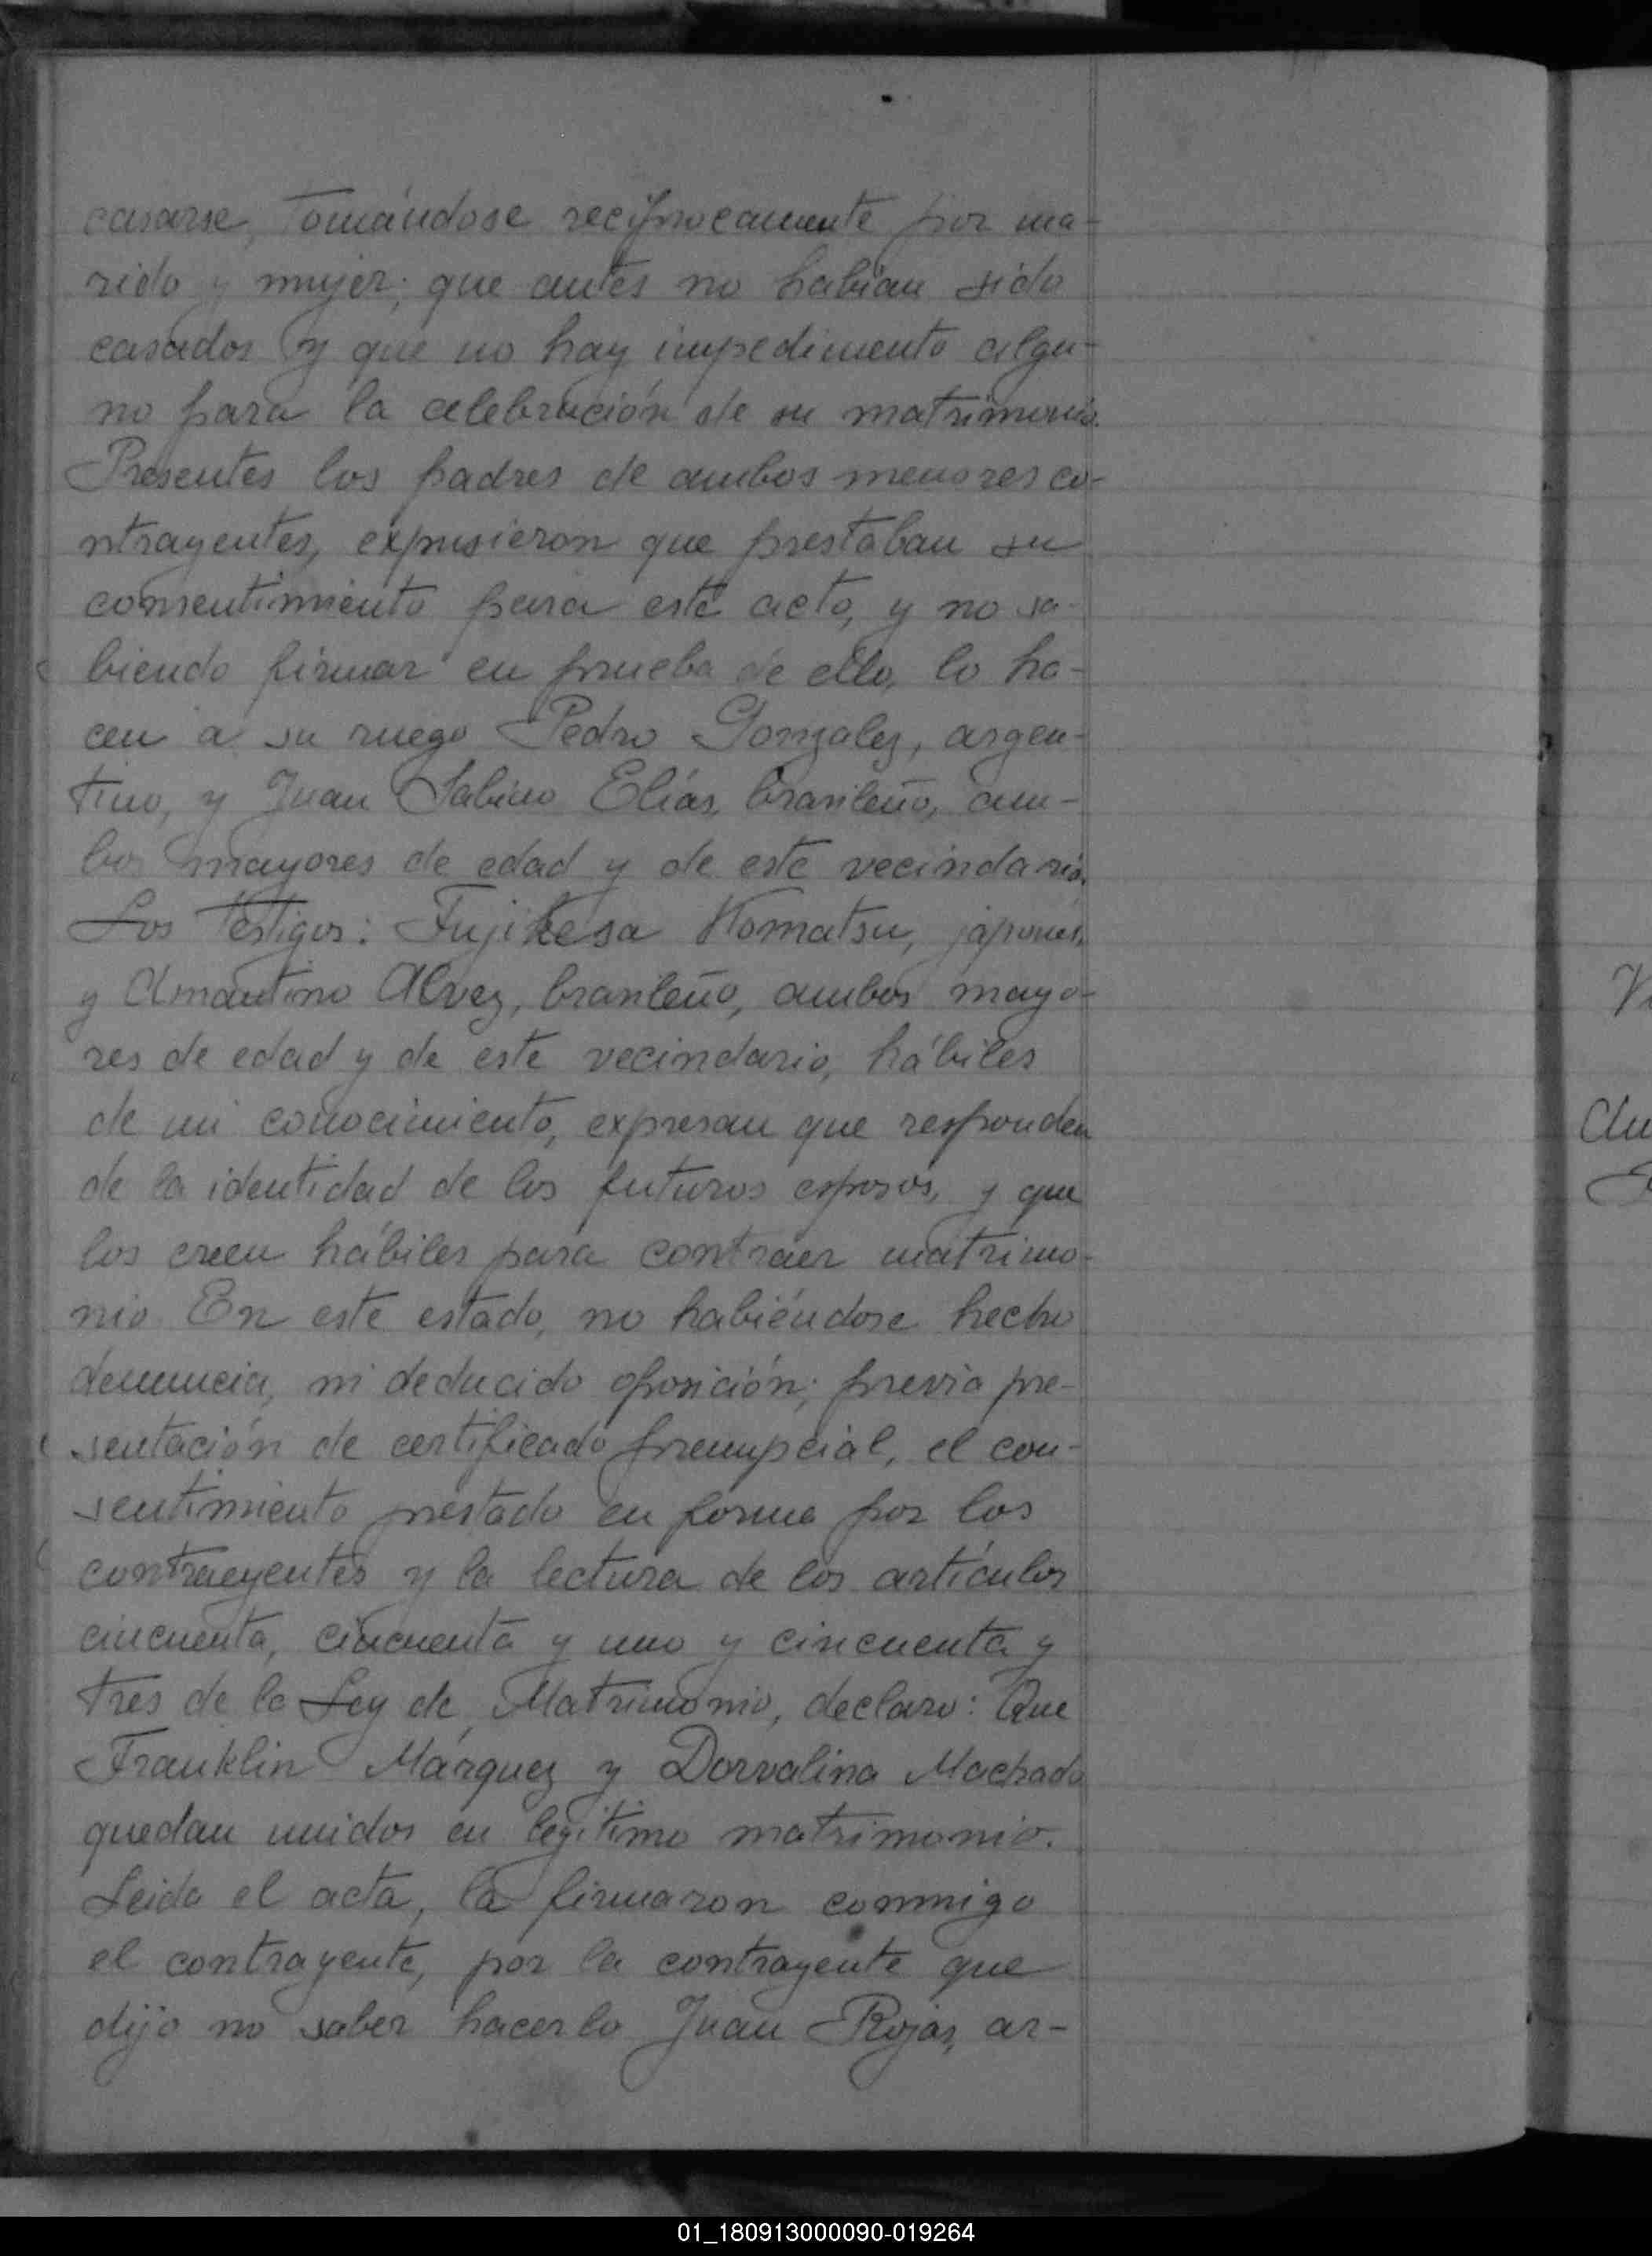 casarse, tomándose recíprocamente por ma-
rido y mujer; que antes no habían sido
casados y que no hay impedimento algu-
no para la celebración de su matrimonio.
Presentes los padres de ambos menores co-
ntrayentes, expusieron que prestaban su
consentimiento para este acto, y no sa-
biendo firmar en prueba de ello, lo ha-
cen a su ruego Pedro Gonzalez, argen-
tino, y Juan Sabino Elías, brasileño, am-
bos mayores de edad y de este vecindario.
Los testigos: Fujikesa Komatsu, japonés,
y Amantino Alvez, brasileño, ambos mayo-
res de edad y de este vecindario, hábiles
de mi conocimiento, expresan que responden
de la identidad de los futuros esposos, y que
los creen hábiles para contraer matrimo-
nio. En este estado, no habiéndose hecho
denuncia, ni deducido oposición; previa pre-
sentación de certificado prenupcial, el con-
sentimiento prestado en forma por los
contrayentes y la lectura de los artículos
cincuenta, cincuenta y uno y cincuenta y
tres de la Ley de Matrimonio, declaro: Que
Franklin Márquez y Dorvalina Machado
quedan unidos en legítimo matrimonio.
Leida el acta, la firmaron conmigo
el contrayente, por la contrayente que
dijo no saber hacerlo Juan Rojas, ar-
01_180913000090-019264